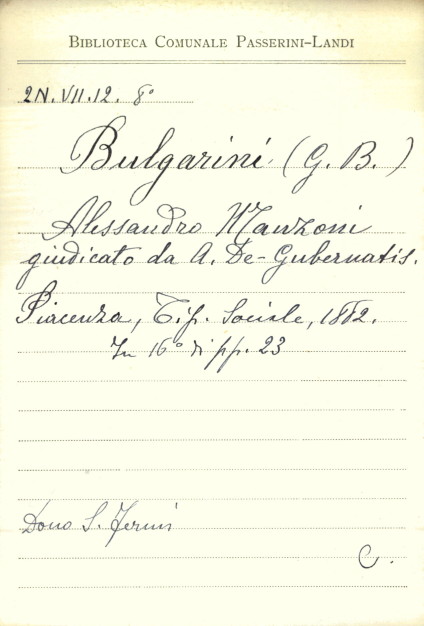 BIBLIOTECA COMUNALE PASSERINI-LANDI
2N.VII.12. 8°
Bulgarini (G. B.)
Alessandro Manzoni
giudicato da A. De-Gubernatis.
Piacenza, Tip. Sociale, 1882.
In 16° di pp. 23
Dono S. Fermi
C.